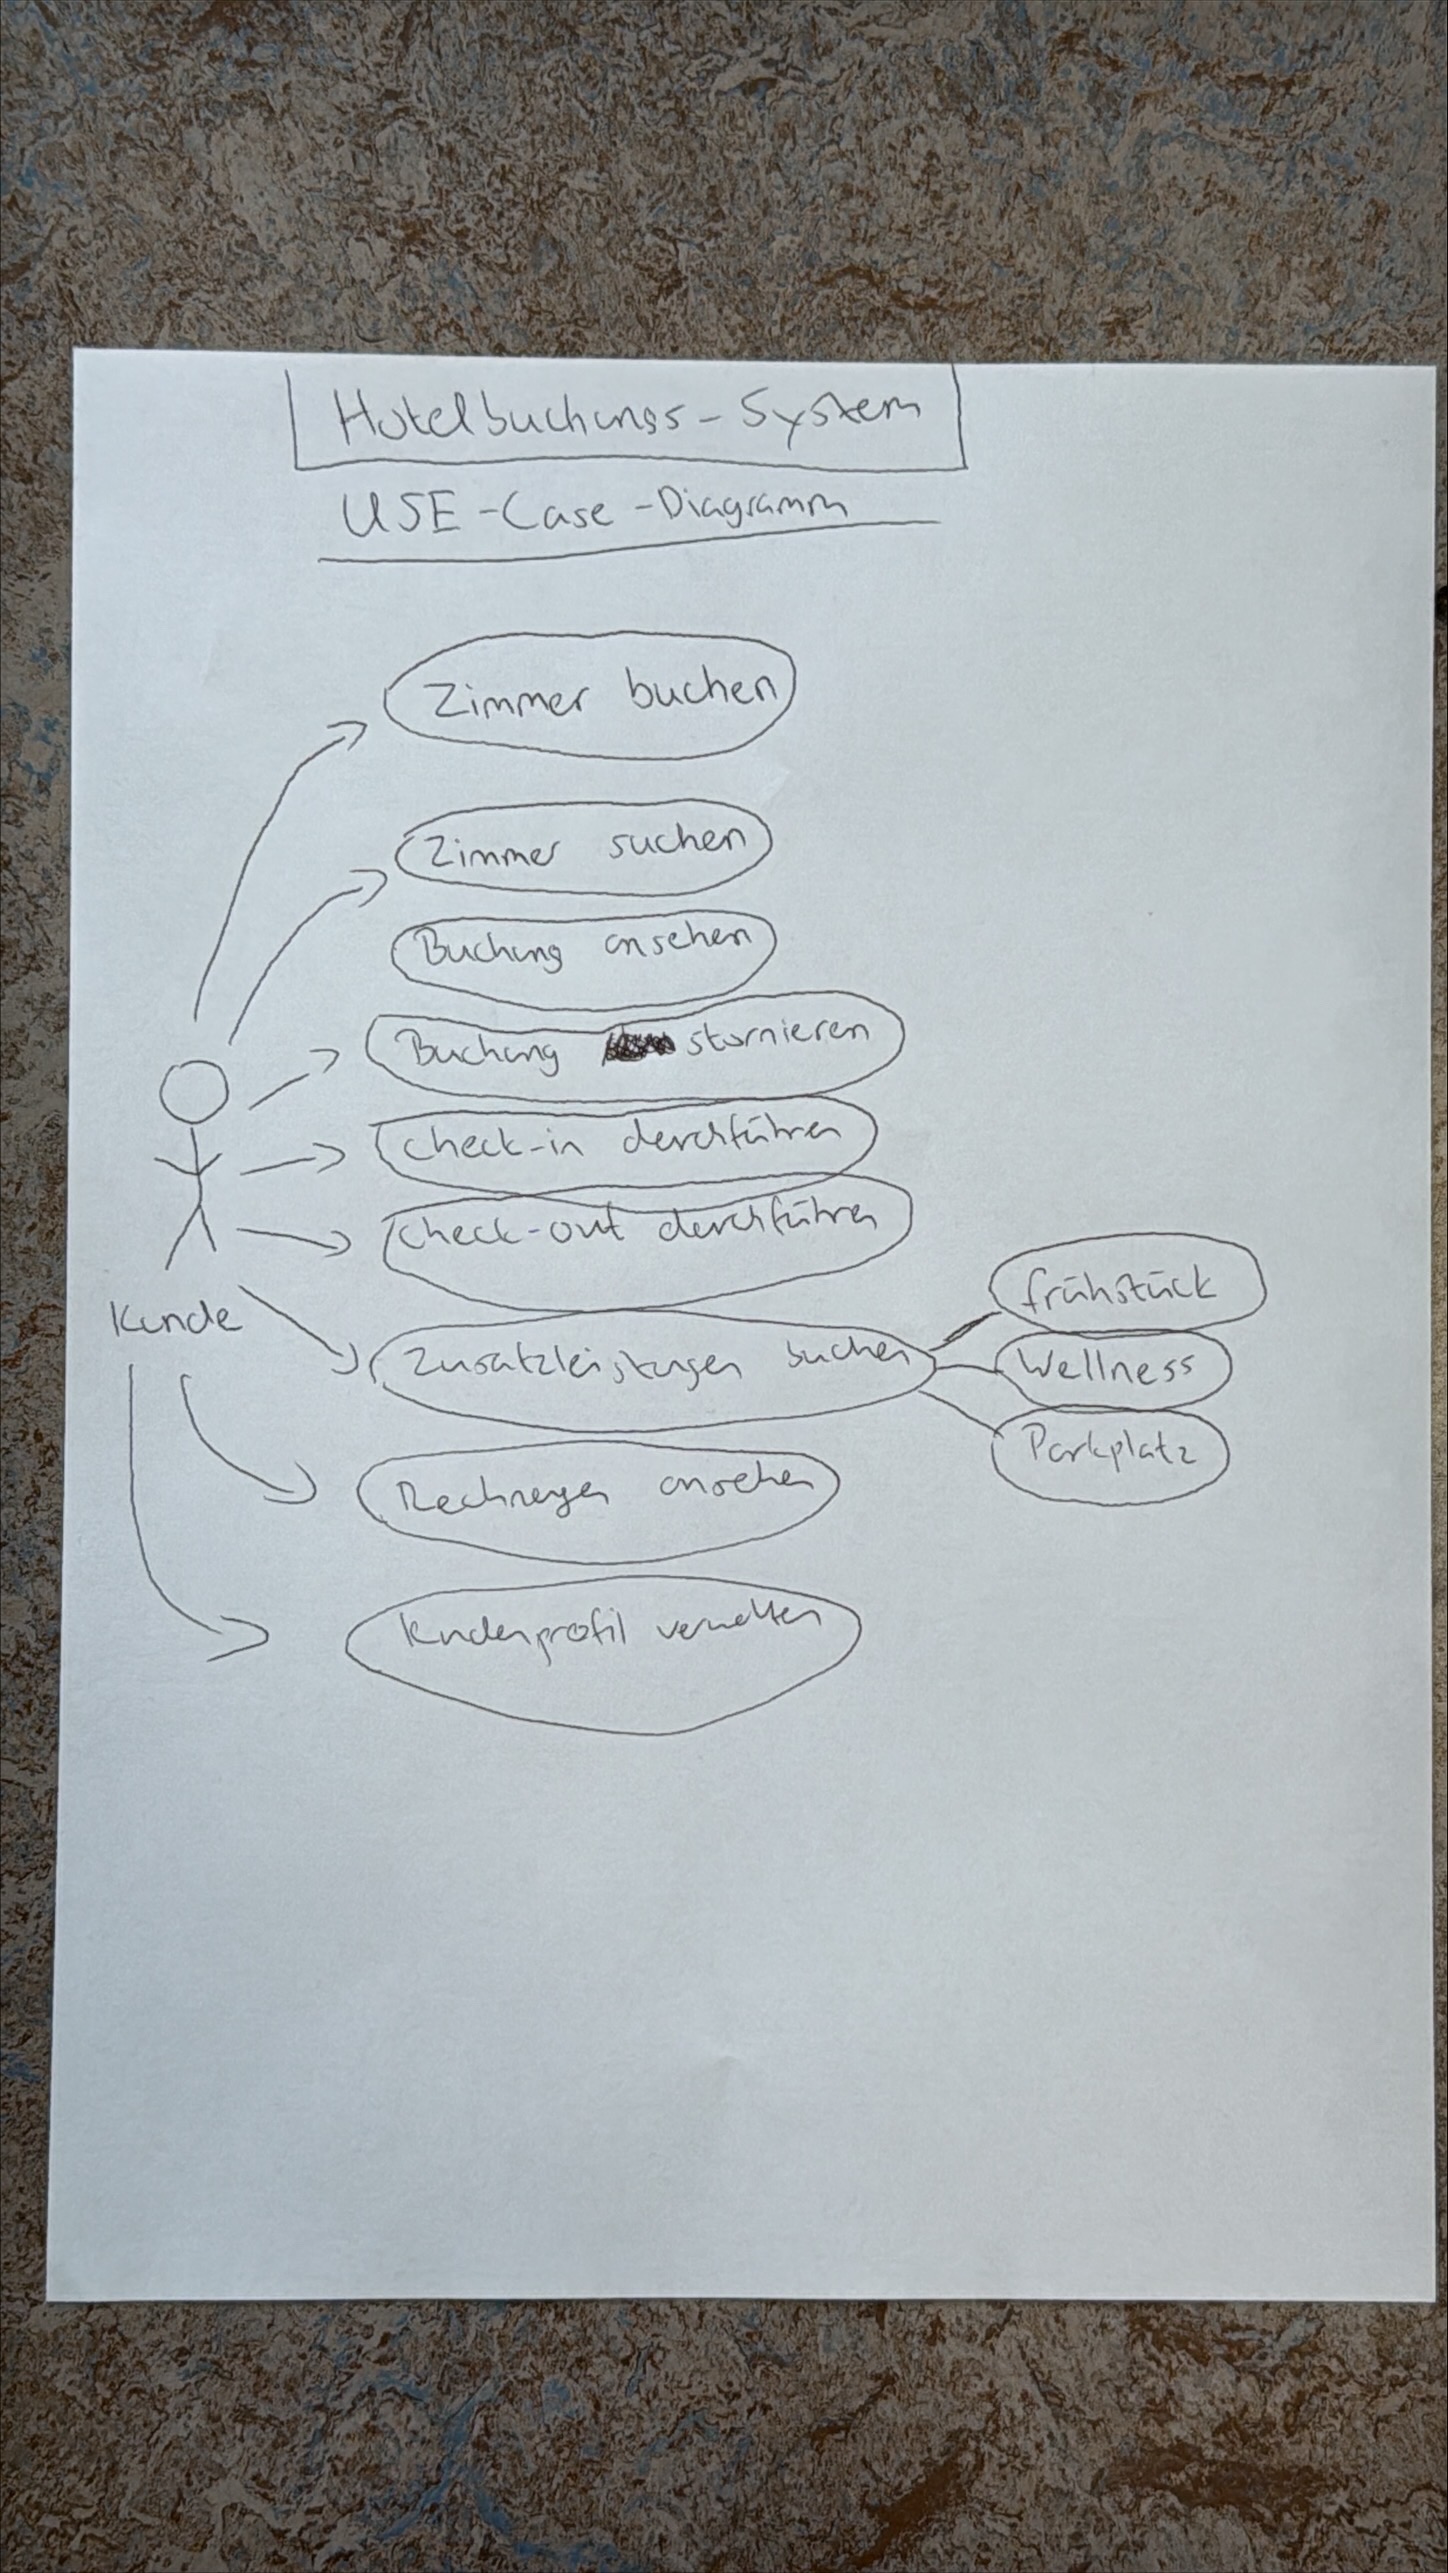 Hotelbuchungs-System
USE-Case-Diagramm
Zimmer buchen
Zimmer suchen
Buchung ansehen
Buchung stornieren
Check-in durchführen
Check-out durchführen
Kunde
Zusatzleistungen buchen
Frühstück
Wellness
Parkplatz
Rechnungen ansehen
Kundenprofil verwalten